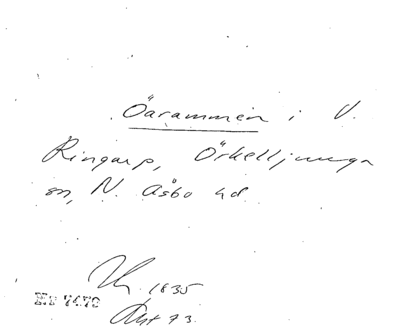 Öarammen i V.
Ringarp, Örkelljunga
sn, N. Åsbo hd
1835
7470
73.